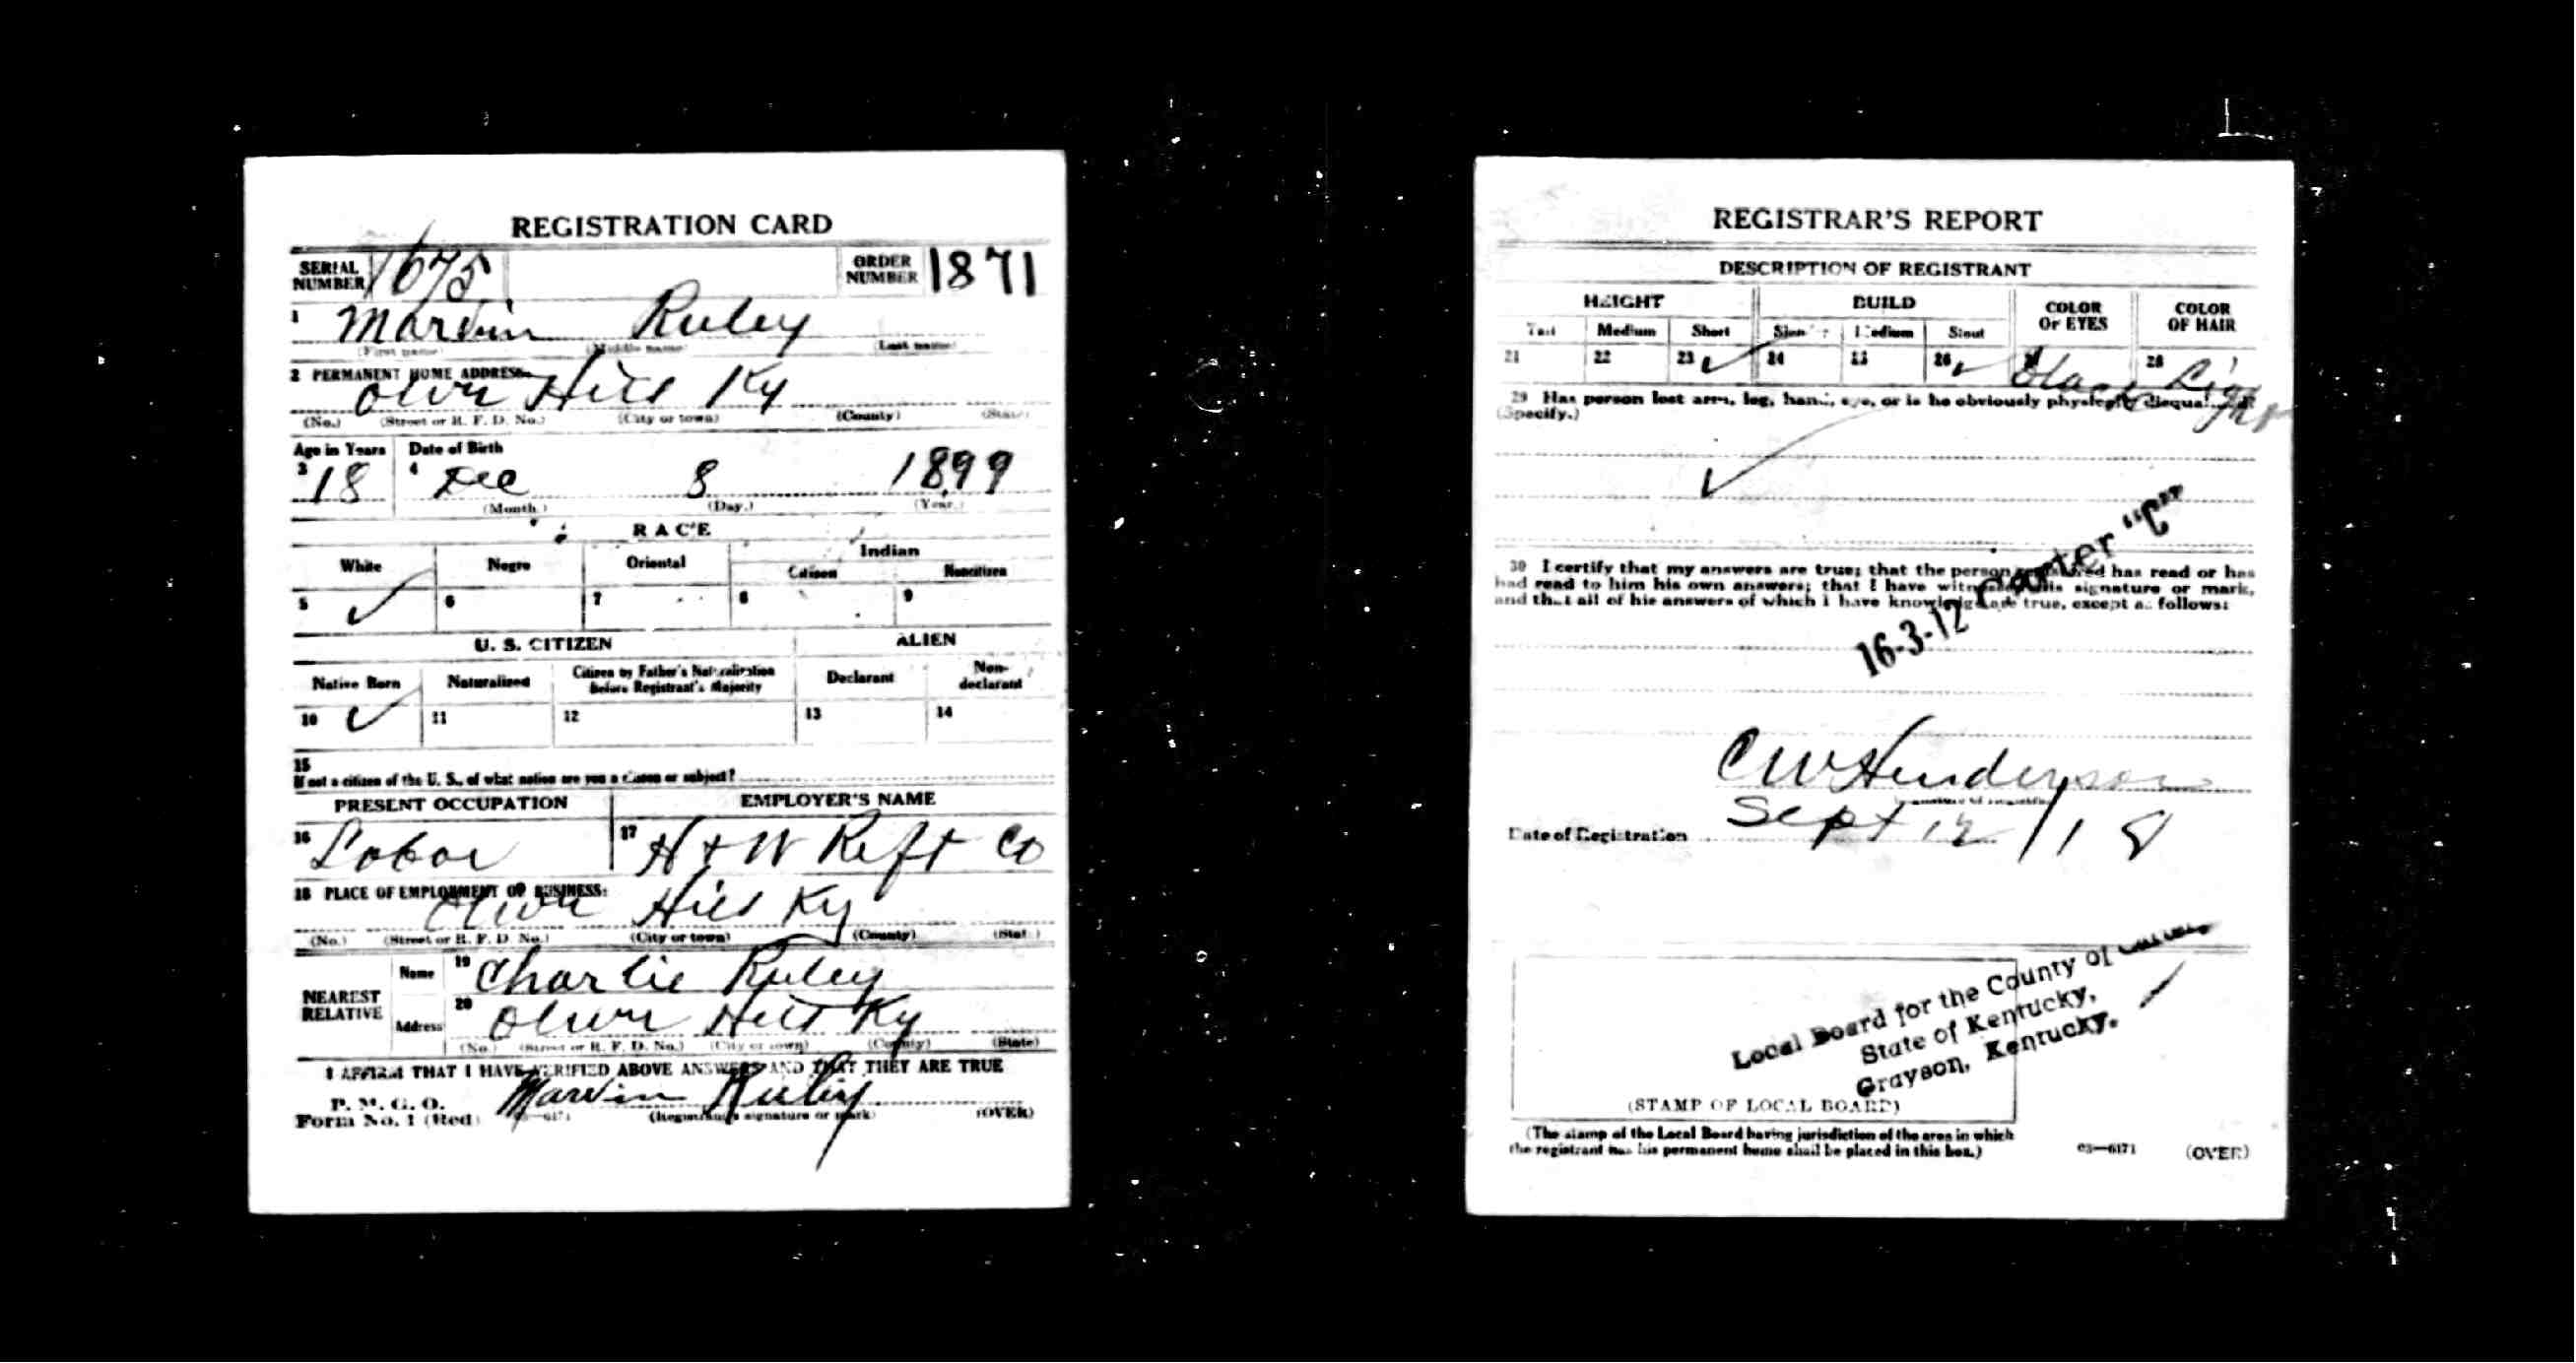 REGISTRATION CARD
SERIAL NUMBER 1675 ORDER NUMBER 1871
1 Marvin Ruley
(First name) (Middle name) (Last name)
2 PERMANENT HOME ADDRESS:
Olive Hill Ky
(No.) (Street or R. F. D. No.) (City or town) (County) (State)
Age in Years Date of Birth
3 18 4 Dec 8 1899
(Month.) (Day.) (Year.)
RACE
White Negro Oriental Indian
Citizen Noncitizen
5 ✓ 6 7 8 9
U. S. CITIZEN ALIEN
Native Born Naturalized Citizen by Father's Naturalization Before Registrant's Majority Declarant Non-declarant
10 ✓ 11 12 13 14
15
If not a citizen of the U. S., of what nation are you a citizen or subject?
PRESENT OCCUPATION EMPLOYER'S NAME
16 Labor 17 H + W Reft Co
18 PLACE OF EMPLOYMENT OR BUSINESS:
Olive Hill Ky
(No.) (Street or R. F. D. No.) (City or town) (County) (State)
NEAREST RELATIVE
Name 19 Charlie Ruley
Address 20 Olive Hill Ky
(No.) (Street or R. F. D. No.) (City or town) (County) (State)
I AFFIRM THAT I HAVE VERIFIED ABOVE ANSWERS AND THAT THEY ARE TRUE
P. M. G. O.
Form No. 1 (Red) Marvin Ruley
(Registrant's signature or mark) (OVER)
REGISTRAR'S REPORT
DESCRIPTION OF REGISTRANT
HEIGHT BUILD COLOR OF EYES COLOR OF HAIR
Tall Medium Short Slender Medium Stout
21 22 23 ✓ 24 25 26 ✓ 27 28 Light
29 Has person lost arm, leg, hand, eye, or is he obviously physically disqualified?
(Specify.)
✓
30 I certify that my answers are true; that the person registered has read or has
had read to him his own answers; that I have witnessed his signature or mark,
and that all of his answers of which I have knowledge are true, except as follows:
16-3-12 Carter "C"
C W Henderson
(Signature of Registrar)
Date of Registration Sept 12/18
Local Board for the County of Carter,
State of Kentucky,
Grayson, Kentucky.
(STAMP OF LOCAL BOARD)
(The stamp of the Local Board having jurisdiction of the area in which
the registrant has his permanent home shall be placed in this box.)
03—6171 (OVER)